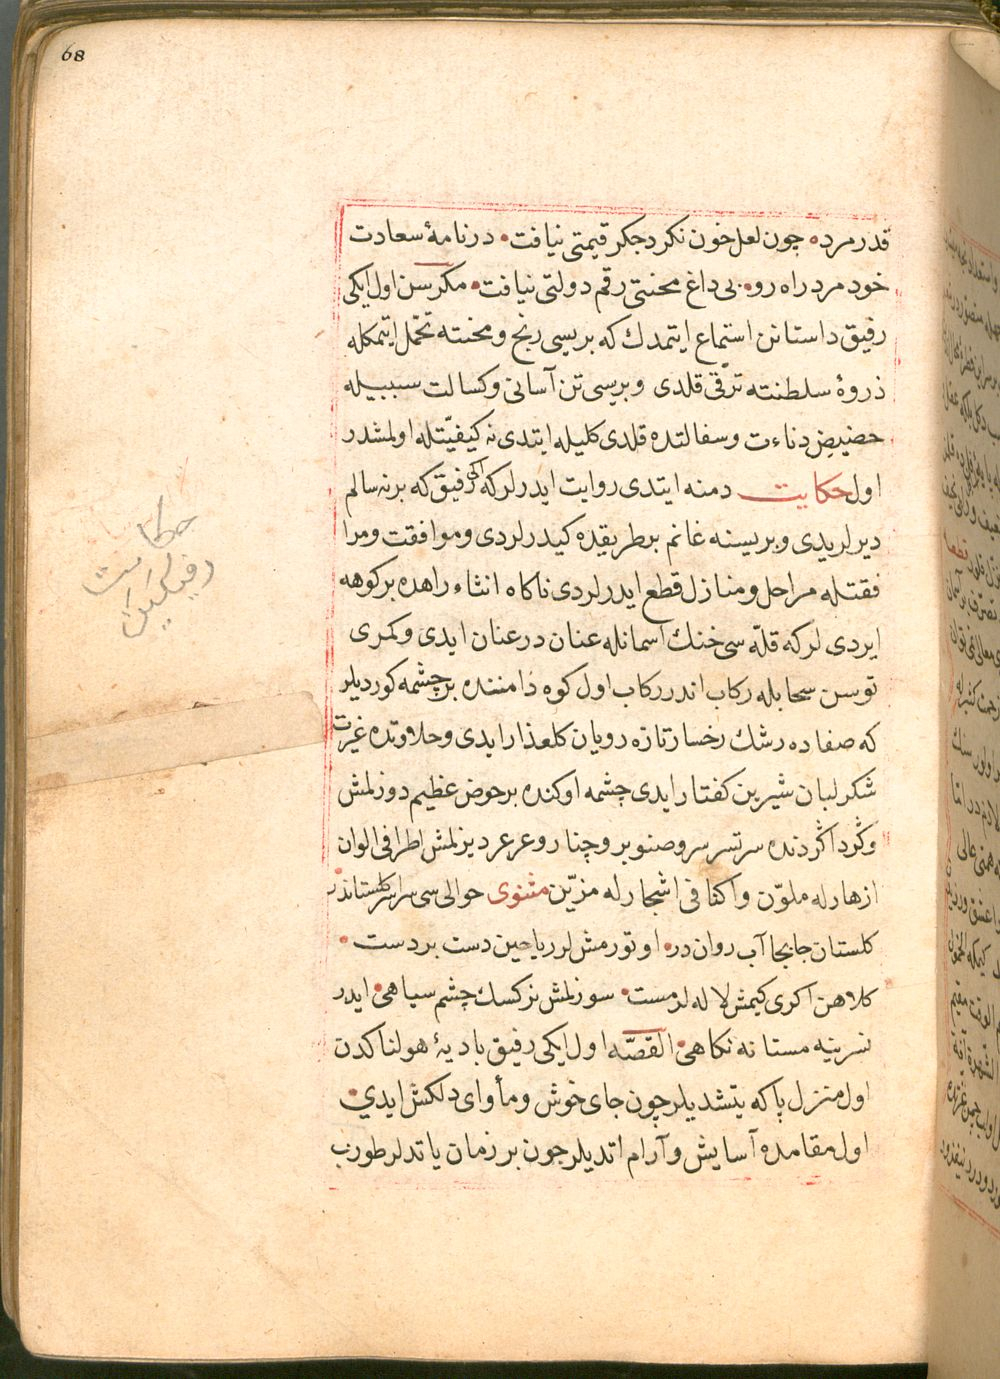 68
قدر مرد ه چون لعل خون نکرد جکر قیمتی نیافت • درنامۀ سعادت
خود مرد راه رو • بی داغ محنتی رقم دولتی نیافت • مکر سن اول ایکی
رفیق داستانن استماع ایتمدك که بریسی رنج و محنته تحمّل ایتمکله
ذروۀ سلطنته ترقّی قلدی و بریسی تن آسانی و کسالت سببیله
حضیض دناءت و سفالتده قلدی کلیله ایتدی نه کیفیّتله اولمشدر
اول حکایت دمنه ایتدی روایت ایدرلر که ایکی رفیق که برنه سالم
دیرلریدی و بریسنه غانم بر طریقده کیدرلردی و موافقت و مرا
فقتله مراحل و منازل قطع ایدرلردی ناکاه اثناء راهده بر کوهه
ایردی لر که قلّه سی خنك اسمانله عنان در عنان ایدی و کمری
توسن سحابله رکاب اندر رکاب اول کوه دامننده بر چشمه کوردیلر
که صفاده رشك رخسار تازه رویان کلعذار ایدی و حلاوتده غیرت
شکر لبان شیرین کفتار ایدی چشمه اوکنده بر حوض عظیم دوزلمش
و کرداکردنده سرتسر سرو صنوبر و چنار و عرعر دیزلمش اطرافی الوان
ازهارله ملوّن و اکنافی اشجارله مزیّن مثنوی حوالی سی سراسر کلستاندر
کلستان جابجا آب رواندر • اوتورمش لر ریاحین دست بردست •
کلاهن اکری کیمش لاله لر مست • سوزلمش نرکسك چشم سیاهی • ایدر
نسرینه مستانه نکاهی • القصّه اول ایکی رفیق بادیۀ هولناکدن
اول منزل پاکه یتشدیلر چون جای خوش و مأوای دلکش ایدی •
اول مقامده آسایش و آرام اتدیلر چون بر زمان یاتدلر طورب
حکایت